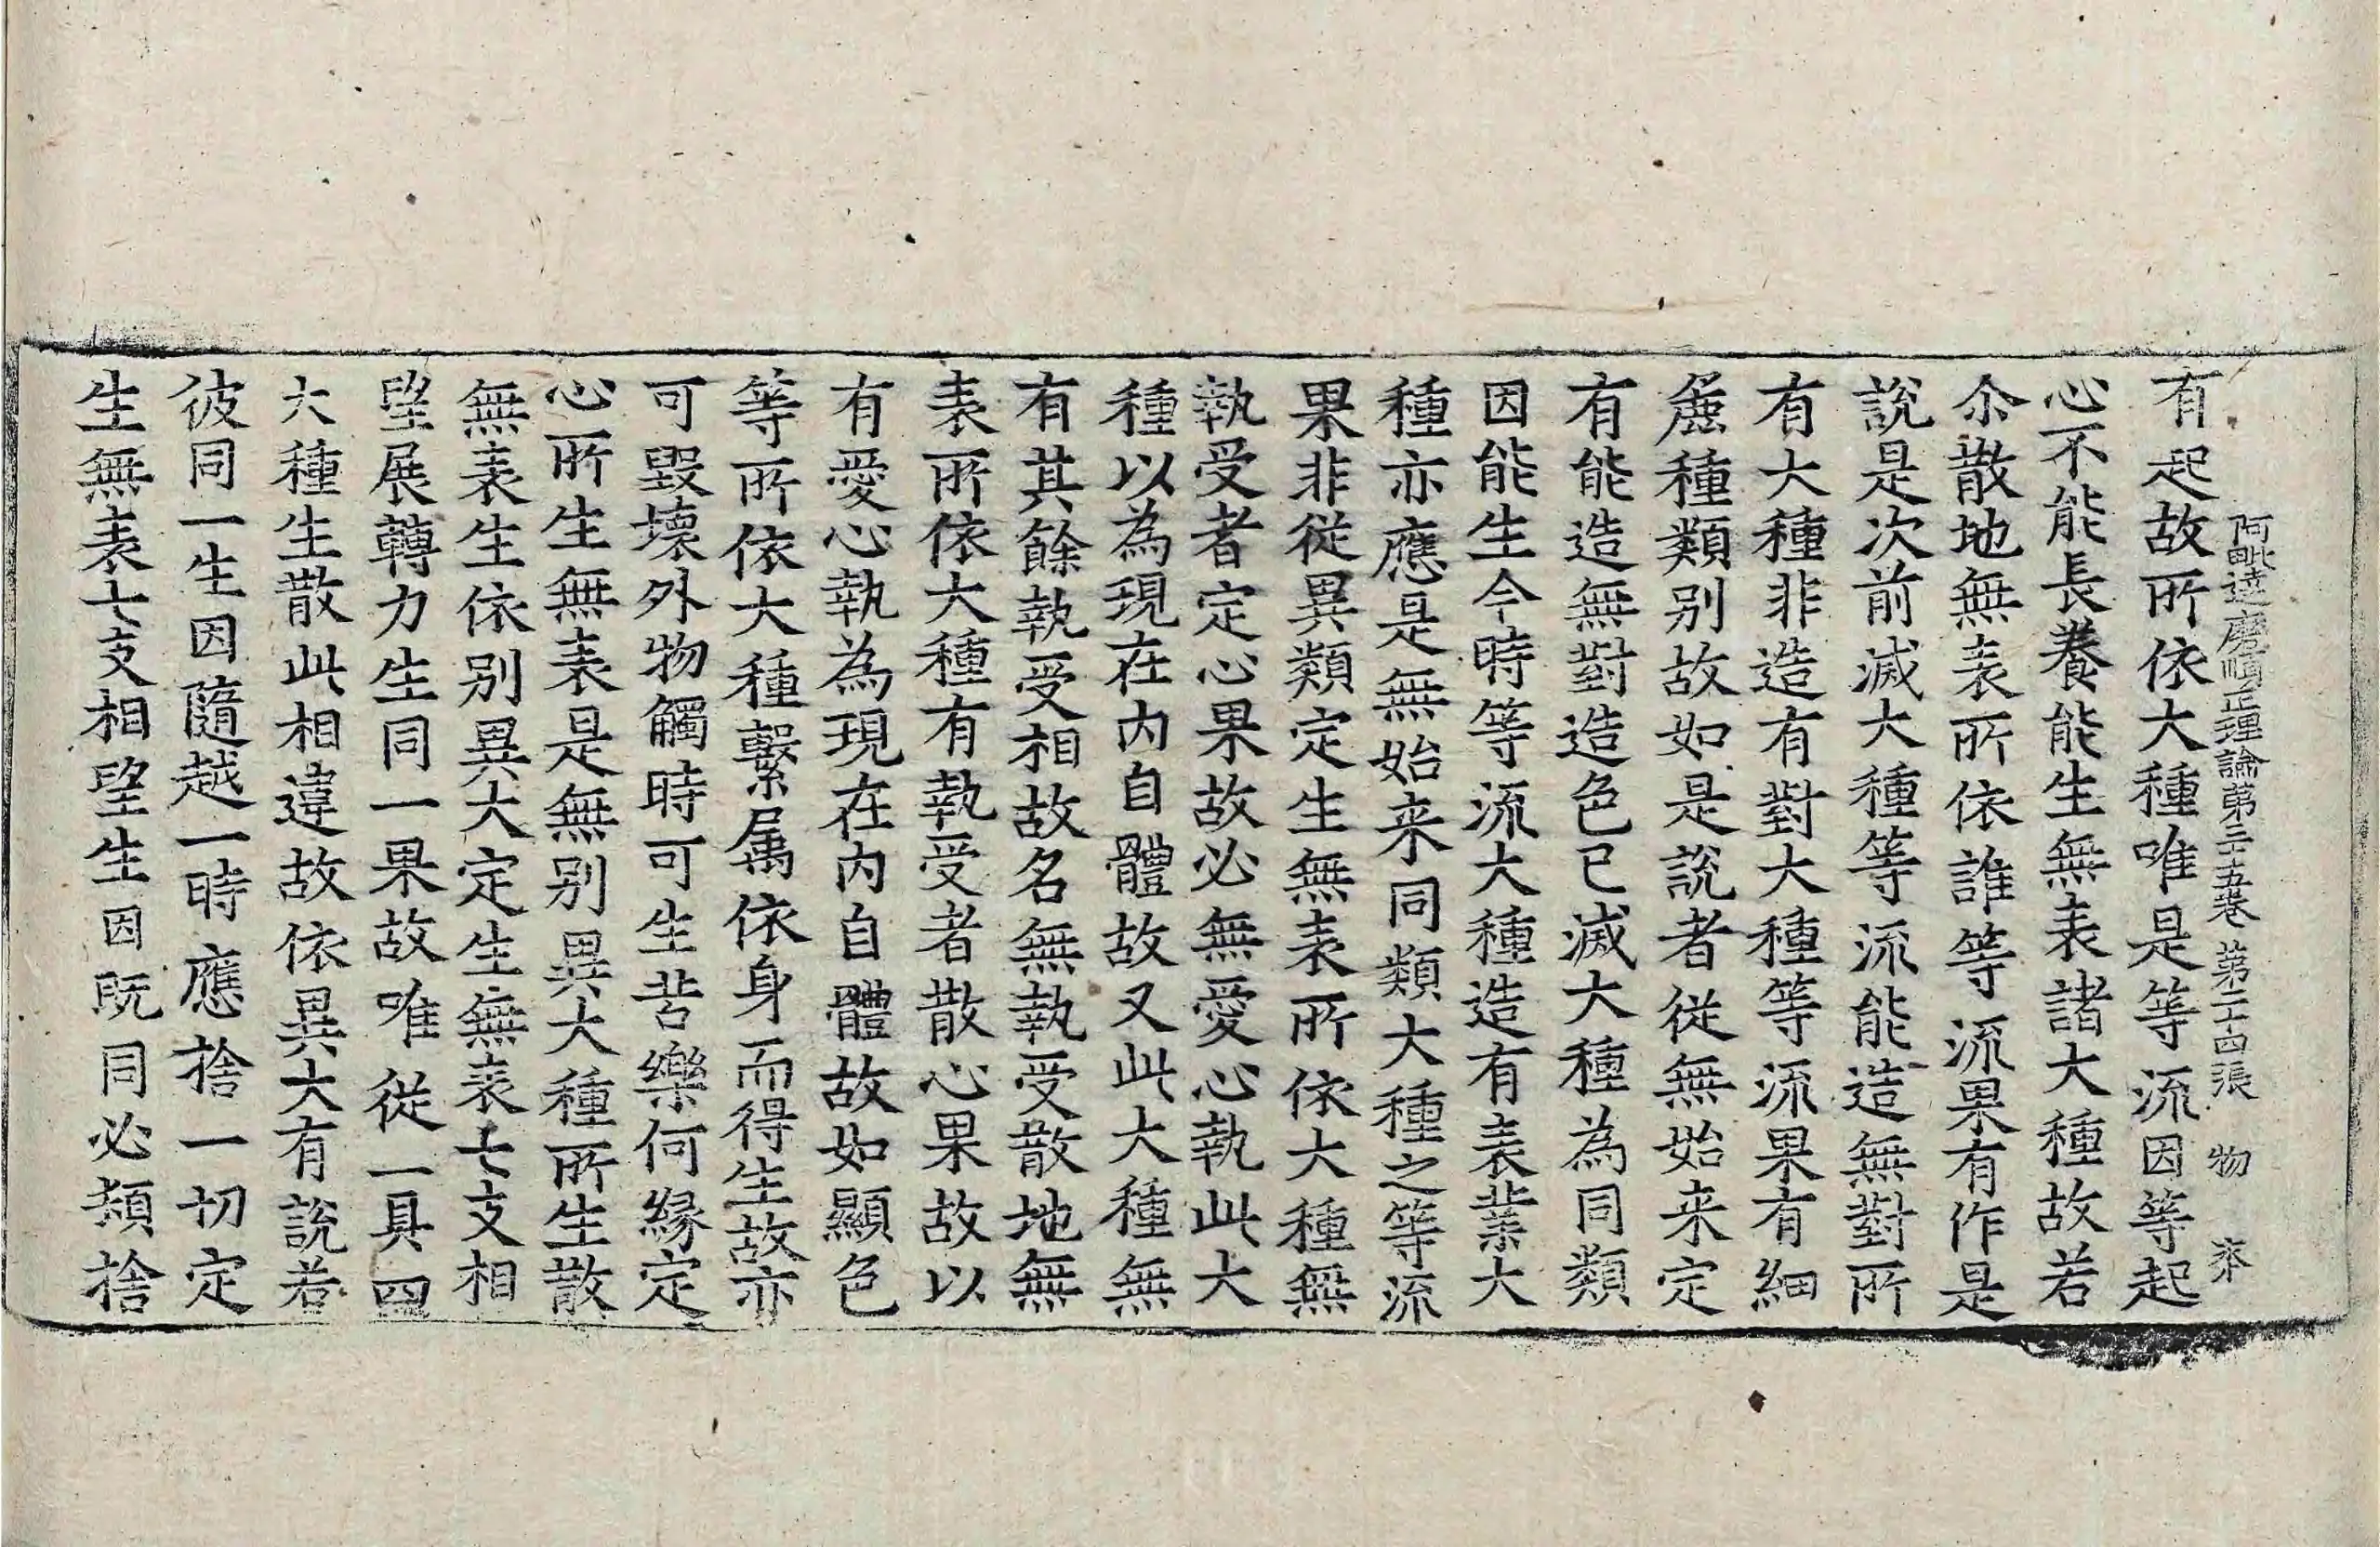 阿毗達磨順正理論第三十五卷 第二十四張 物
有起故所依大種唯是等流因等起
心不能長養能生無表諸大種故若
尒散地無表所依誰等流果有作是
說是次前滅大種等流能造無對所
有大種非造有對大種等流果有細
麁種類别故如是說者從無始来定
有能造無對造色已滅大種為同類
因能生今時等流大種造有表業大
種亦應是無始来同類大種之等流
果非從異類定生無表所依大種無
執受者定心果故必無愛心執此大
種以為現在内自體故又此大種無
有其餘執受相故名無執受散地無
表所依大種有執受者散心果故以
有愛心執為現在内自體故如顯色
等所依大種繫属依身而得生故亦
可毀壞外物觸時可生苦樂何緣定
心所生無表是無别異大種所生散
無表生依别異大定生無表七支相
望展轉力生同一果故唯從一具四
大種生散此相違故依異大有說若
彼同一生因隨越一時應捨一切定
生無表七支相望生因既同必頓捨